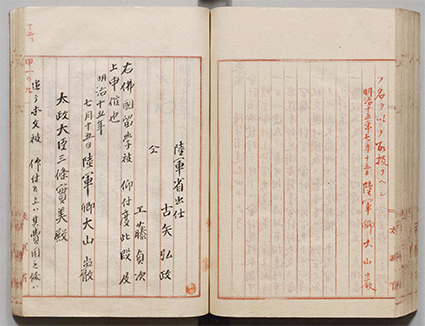 ノ名ヲ以テ
明治十五年七月十三日 陸軍卿大山巌
陸軍省出仕
古矢弘政
仝
工藤貞次
右佛國留学被 仰付度此段及
上申候也
明治十五年
七月十五日 陸軍卿大山巌
太政大臣三條實美殿
追テ本文被 仰付候上ハ其費用之儀ハ